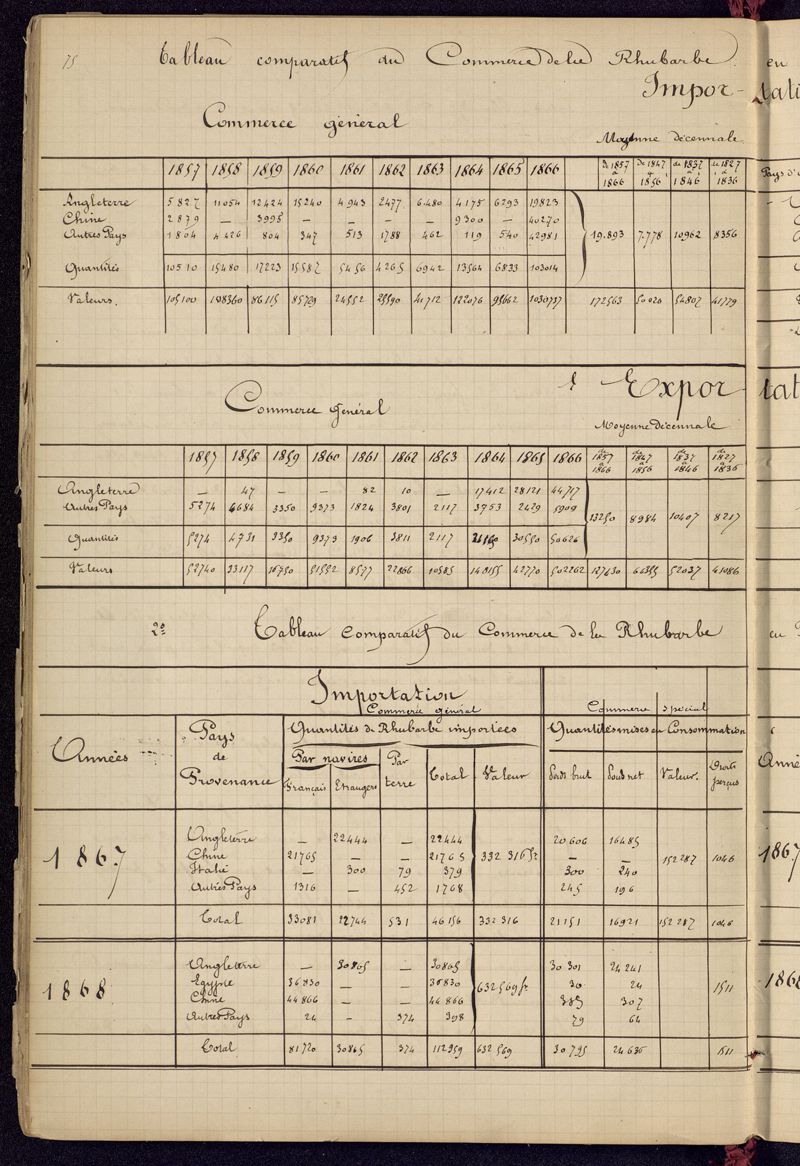 75 Tableau comparatif du Commerce de la Rhubarbe en
Impor- tati
Commerce général
Moyenne décennale
1857 1858 1859 1860 1861 1862 1863 1864 1865 1866 de 1857 à 1866 de 1847 à 1856 de 1837 à 1846 de 1827 à 1836 Pays d'
Angleterre 5827 11054 12424 15240 4943 2477 6480 4175 6293 19823
Chine 2879 — 3995 — — — — 9300 — 40270
Autres Pays 1804 4426 804 347 513 1788 462 119 540 42981 19.893 7.778 10962 8356
Quantités 10510 15480 17223 15587 5456 4265 6942 13564 6833 103014
Valeurs. 105100 108360 86115 85729 24552 25590 41712 122076 95662 1030737 172563 50020 54807 41779
Expor tat
Commerce général
Moyenne décennale
1857 1858 1859 1860 1861 1862 1863 1864 1865 1866 de 1857 à 1866 de 1847 à 1856 de 1837 à 1846 de 1827 à 1836
Angleterre — 47 — — 82 10 — 17412 28121 44,717
Autres Pays 5274 4684 3350 9373 1824 3801 2117 3753 2429 5909 13250 8984 10407 8217
Quantités 5274 4731 3350 9373 1906 3811 2117 30550 50626
Valeurs 52740 33117 16750 51552 8577 22866 10585 148155 42770 502262 127430 66355 52037 41086
2º Tableau comparatif du Commerce de la Rhubarbe en
Importation
Commerce général Commerce spécial
Années Pays de Provenance Quantités de Rhubarbe importées Quantités mises en Consommation
Par navires Par terre Total Valeur Poids brut Poids net Valeur. Droits perçus Anné
Français Etrangers
1867 1867
Angleterre — 22444 — 22444 20606 16485
Chine 21765 — — 21765 332 316 fr — — 152287 1046
Italie — 300 79 379 300 240
Autres Pays 1316 — 452 1768 245 196
Total 33081 22744 531 46156 332 316 21151 16921 152 287 1046
1868 1868
Angleterre — 30865 — 30865 30 301 24241
Egypte 36830 — — 36830 632 569 fr 30 24 1511
Chine 44866 — — 44866 383 307
Autres Pays 24 — 374 398 79 64
Total 81720 30865 374 112959 632 569 30 795 24636 1511